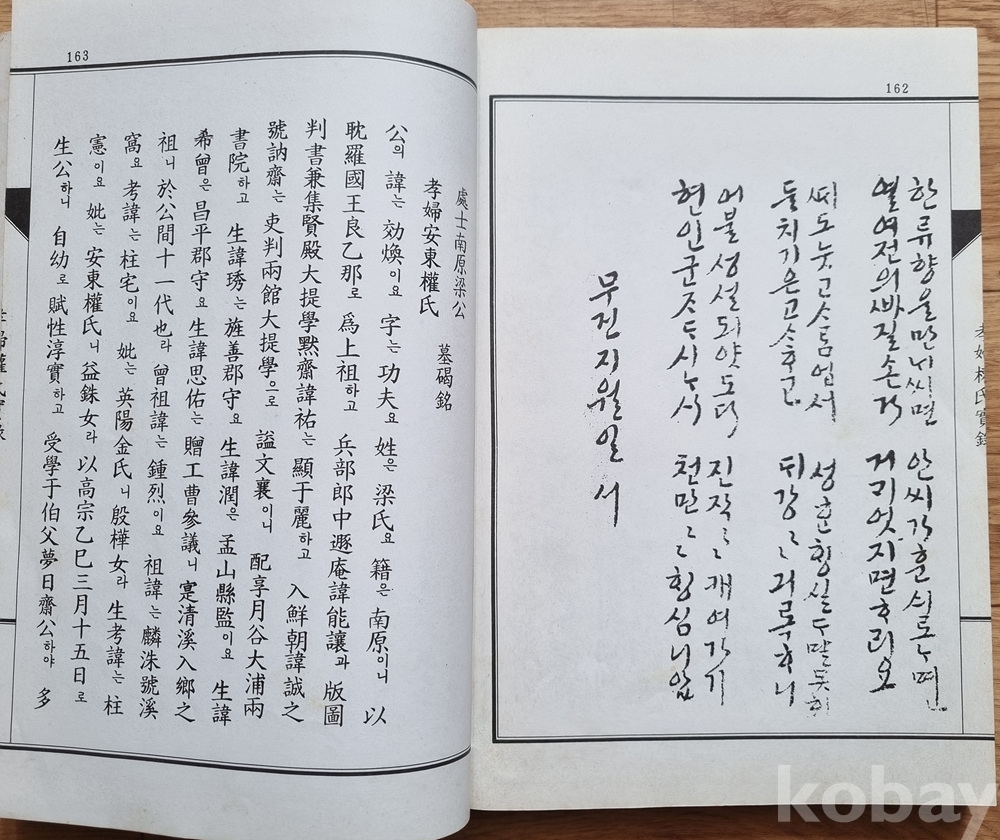 162
한류향을만네씨면 안씨가훈싁로며
열여전의빠질손가 거긔엇지면하리요
씨도눗고소듬업서 성훈횡실두말못하
둘치기은고수후고 뒤강々거록하니
어불성설되얏도다 진작々개여가기
현인군즈두시누석 천만々횡심니압
무진지월일 서
孝婦權氏實錄
163
處士南原梁公
孝婦安東權氏 墓碣銘
公의 諱는 効煥이요 字는 功夫요 姓은 梁氏요 籍은 南原이니 以
耽羅國王良乙那로 爲上祖하고 兵部郎中遯庵諱能讓과 版圖
判書兼集賢殿大提學黙齋諱祐는 顯于麗하고 入鮮朝諱誠之
號訥齋는 吏判兩館大提學으로 謚文襄이니 配享月谷大浦兩
書院하고 生諱琇는 旌善郡守요 生諱潤은 孟山縣監이요 生諱
希曾은 昌平郡守요 生諱思佑는 贈工曹參議니 寔清溪入鄉之
祖니 於公間十一代也라 曾祖諱는 鍾烈이요 祖諱는 麟洙號溪
窩요 考諱는 柱宅이요 妣는 英陽金氏니 殷樺女라 生考諱는 柱
憲이요 妣는 安東權氏니 益銖女라 以高宗乙巳三月十五日로
生公하니 自幼로 賦性淳實하고 受學于伯父夢日齋公하야 多
kobay